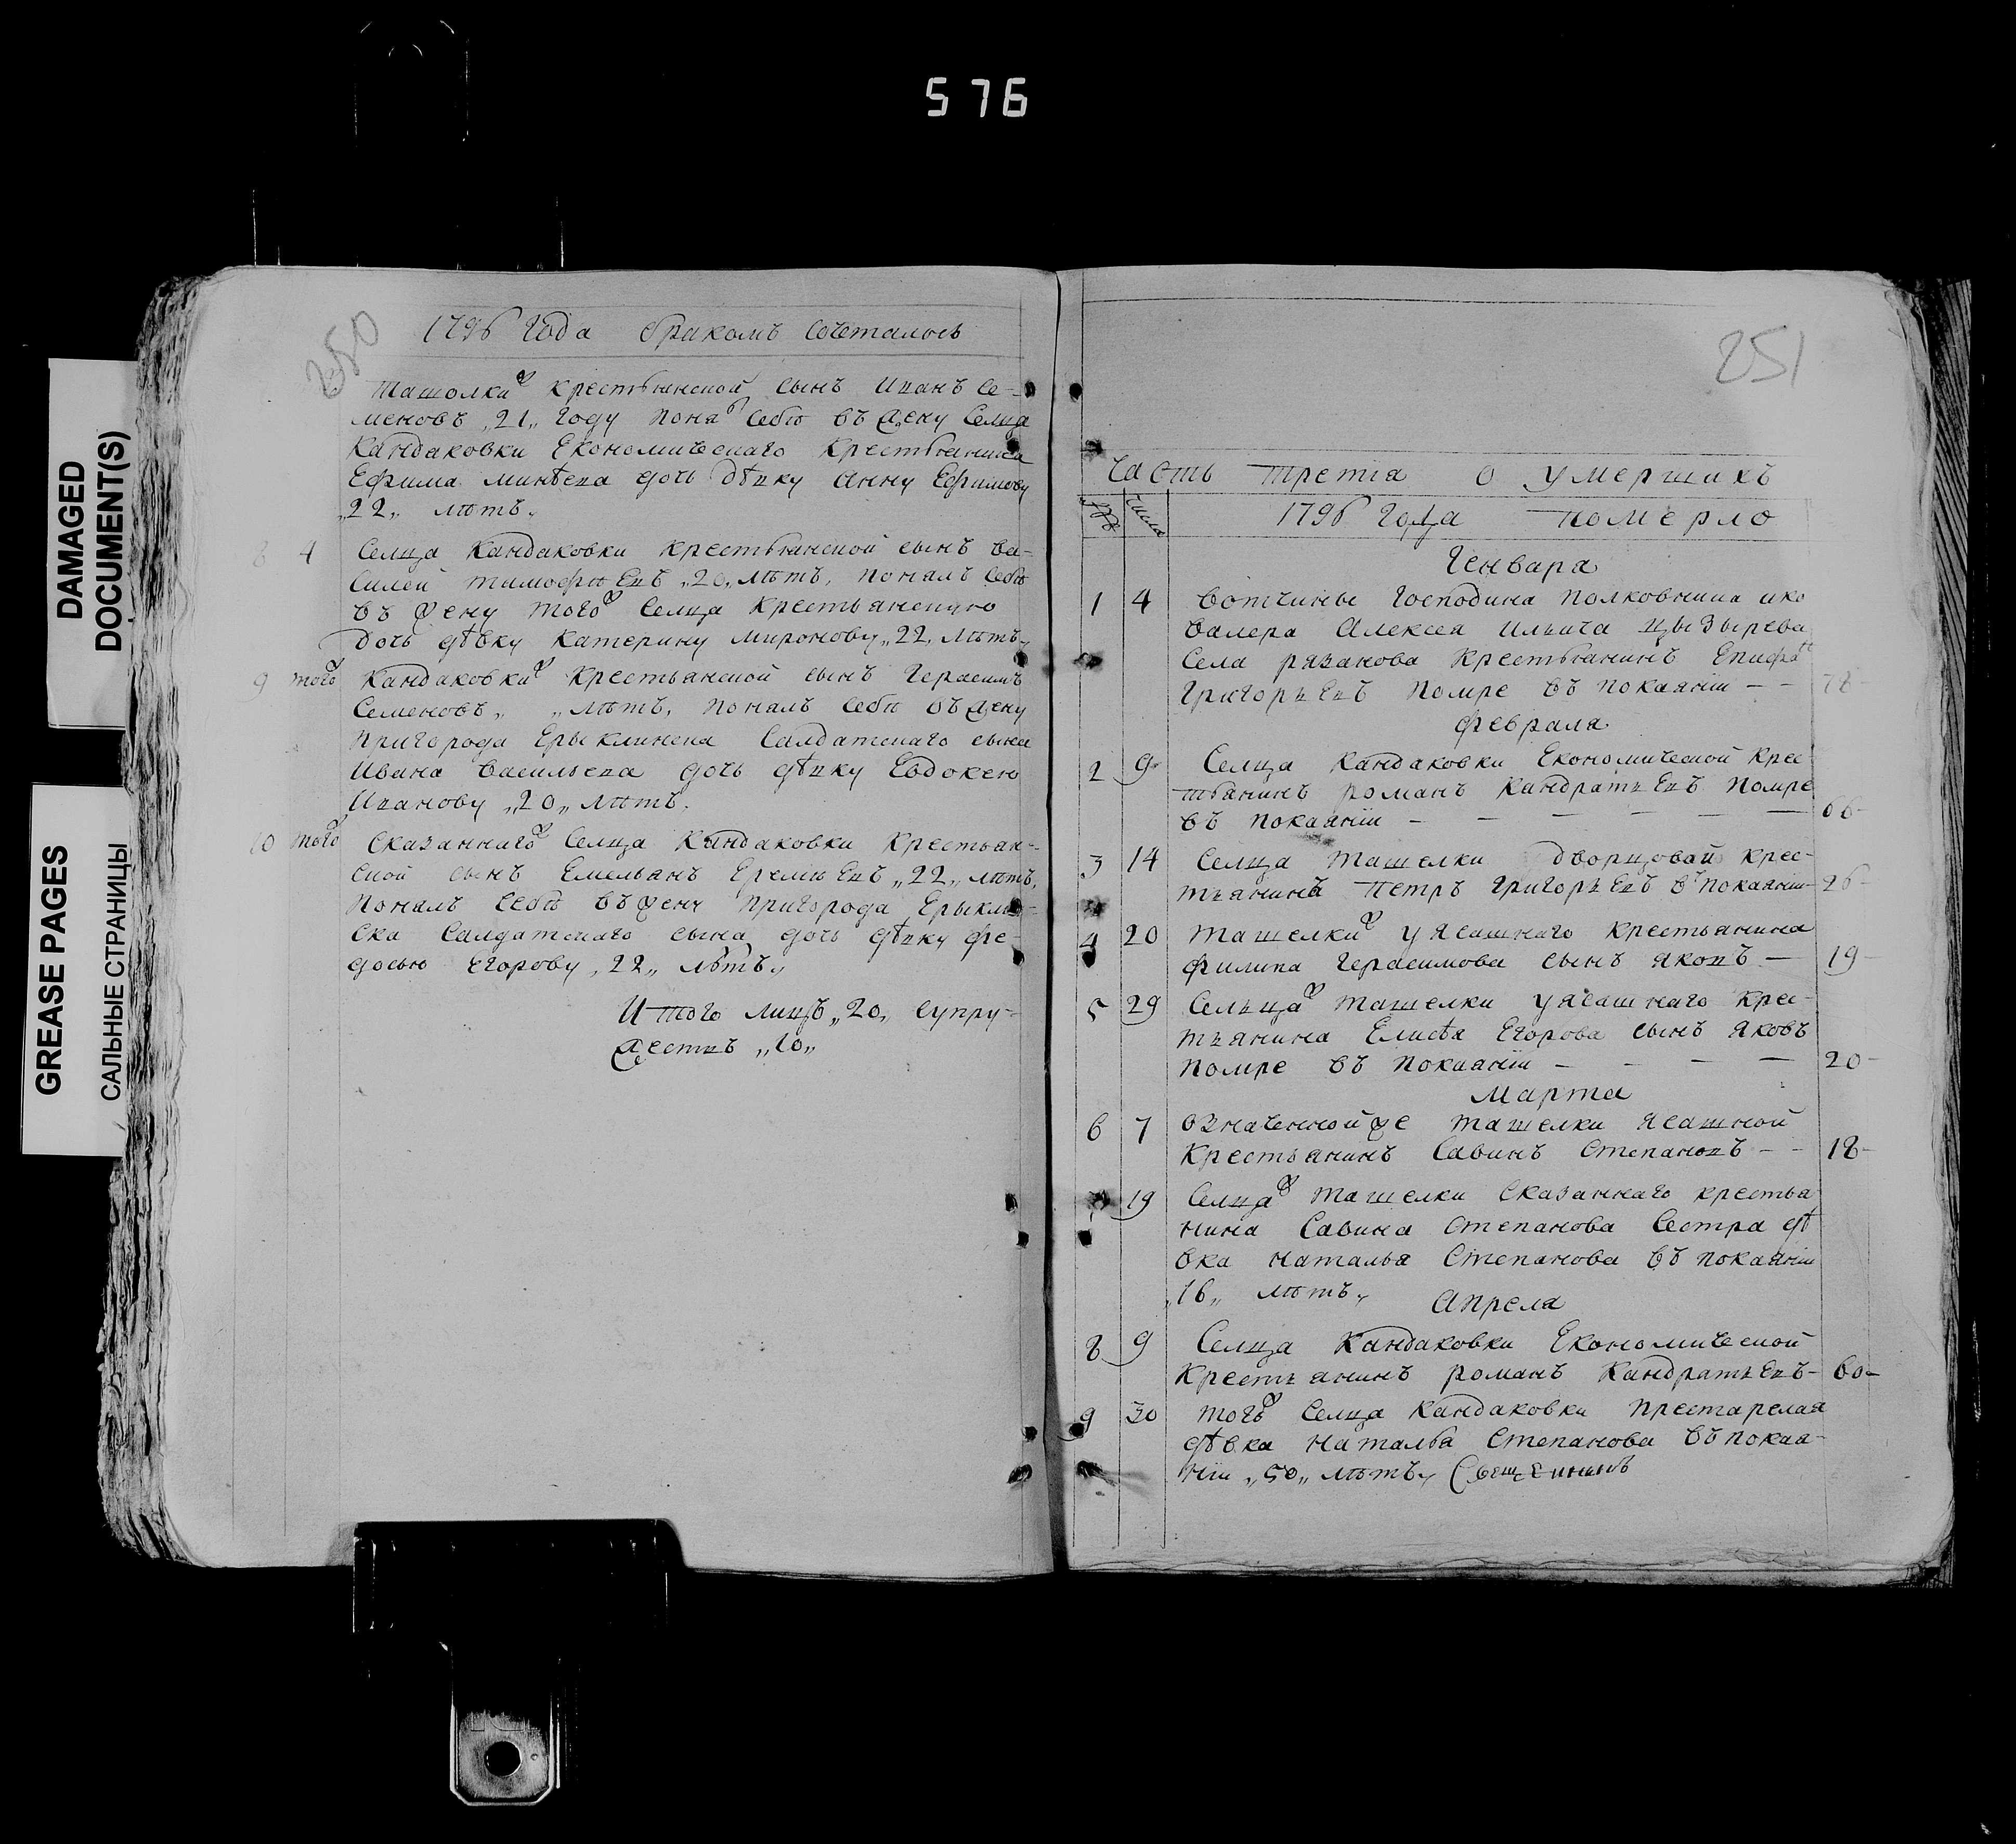 576
DAMAGED
DOCUMENT(S)
GREASE PAGES
САЛЬНЫЕ СТРАНИЦЫ
250
1796 года бракомъ сочеталось
Ташолки ж крестьянской сынъ Иванъ Се-
меновъ „21„ году понял себѣ въ жену Селца
Кандаковки Економическаго Крестьянина
Ефима Минѣева дочь дѣвку Анну Ефимову
„22„ лѣтъ.
8 4 Селца Кандаковки крестьянской сынъ Ва-
силей Тимофѣевъ „20„ лѣтъ, понялъ себѣ
въ жену того ж Селца Крестьянскую
дочь дѣвку Катерину Миронову „22„ лѣтъ
9 того ж Кандаковки ж Крестьянской сынъ Герасимъ
Семеновъ „ „ лѣтъ, понялъ себѣ въ жену
пригорода Ерыклинска Салдатскаго сына
Ивана Васильева дочь дѣвку Евдокею
Иванову „20„ лѣтъ.
10 того ж Сказаннаго ж Селца Кандаковки Крестьян-
ской сынъ Емельянъ Еремѣевъ „22„ лѣтъ,
понялъ себѣ въ жену пригорода Ерыклин-
ска Салдатскаго сына дочь дѣвку Фе-
досью Егорову „22„ лѣтъ
Итого лицъ „20„ супру-
жествъ „10„
251
Часть третiя о умершихъ
числа
1796 года померло
Генваря
1 4 Вотчины Господина полковника и ко
валера Алексея Ильича Цызырева
Села рязанова Крестьянинъ Епифа
Григорьевъ помре въ покаянiи — — 78-
Февраля
2 9 Селца Кандаковки Економической крес
тьянинъ Романъ Кандратьевъ помре
въ покаянiи — — — — — 66-
3 14 Селца Ташелки дворцовай крес-
тьянинъ Петръ Григорьевъ въ покаянiи- 26-
4 20 Ташелки ж у ясашнаго крестьянина
Филипа Герасимова сынъ Яковъ — 19-
5 29 Сельца ж Ташелки у ясашнаго крес-
тьянина Елисѣя Егорова сынъ Яковъ
помре въ покаянiи — — — — 20-
Марта
6 7 Означенной же Ташелки ясашной
Крестьянинъ Савинъ Степановъ — — 18-
19 Селца ж Ташелки Сказаннаго крестья
нина Савина Степанова Сестра дѣ
вка Наталья Степанова въ покаянiи
„16„ лѣтъ
Апреля
8 9 Селца Кандаковки Економической
Крестьянинъ Романъ Кандратьевъ- 60-
9 30 Того ж Селца Кандаковки престарелая
дѣвка Наталья Степанова въ покая-
нiи „50„ лѣтъ